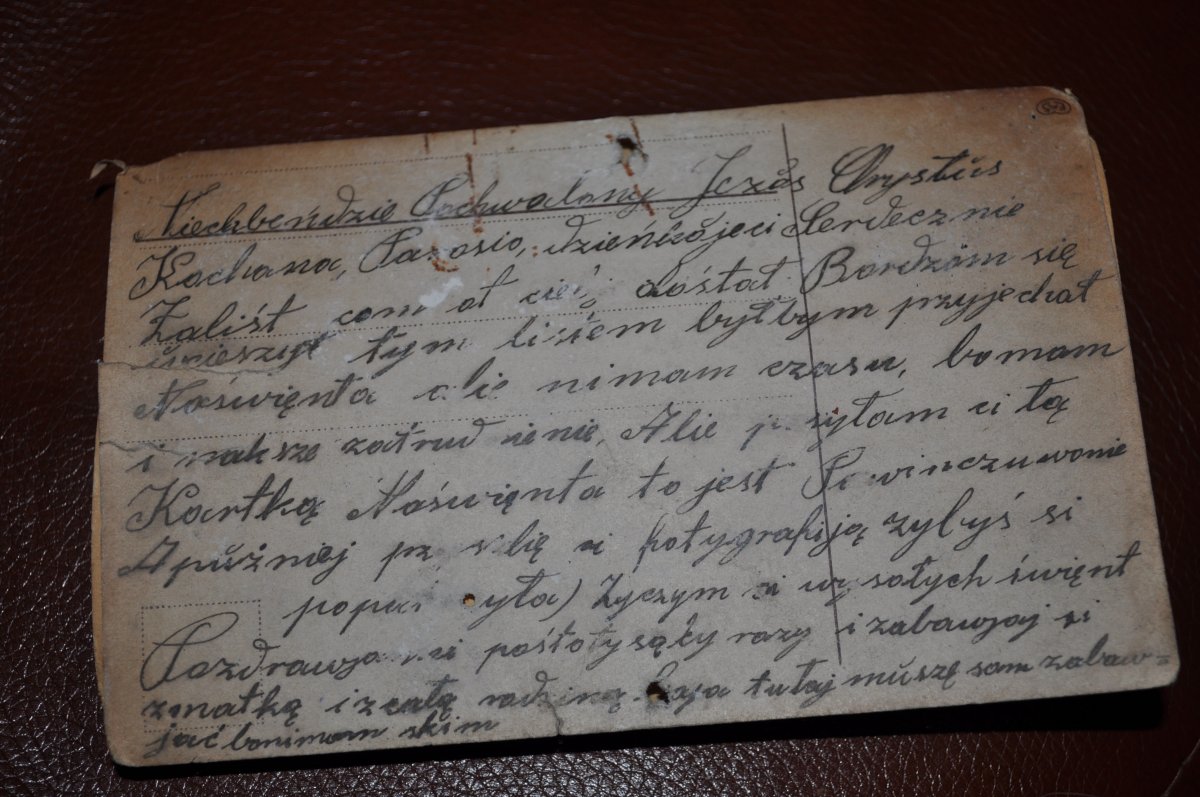 Niechbeńdzie Pochwalony Jezós Chrystús
Kochana, dzieńkójeci Serdecznie
Zaliśt com ot cieb dóstał Bardzóm się
úcieszył tym listem byłbym przyjechał
Naświęnta alie nimam czasu, bomam
i naksze zatrudnienie, Alie posyłam ci tą
Kartką Naświęnta to jest Powinczuwonie
Apóżniej ci fotygrafiją zybyś si
Życzym ci wysołych święnt
Pozdrawjam ci postotysąćy razy i zabawjaj si
zmatką izcałą rodziną boja tutaj múszę sam zabaw=
jać bonimam skim